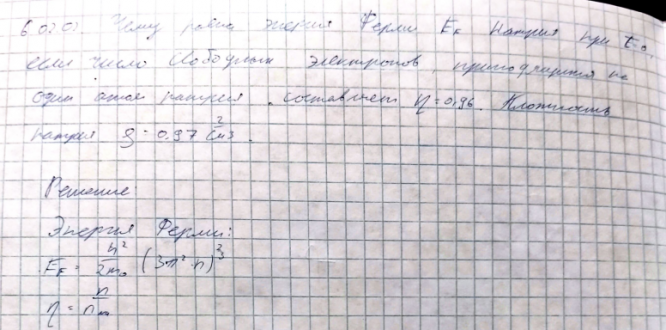 6.02.02. Чему равна энергия Ферми E_F натрия при t=0,
если число свободных электронов, приходящихся на
один атом натрия, составляет η=0,96. Плотность
натрия ρ=0.97 г/см3.
Решение
Энергия Ферми:
E_F = ħ²/2m₀ (3π²·n)^2/3
η = n/n_m